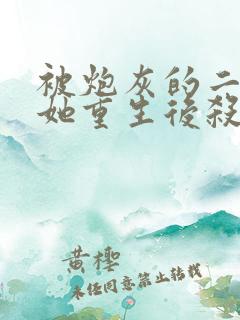 被炮灰的二
她重生後殺
黄樱
未经同意禁止转载